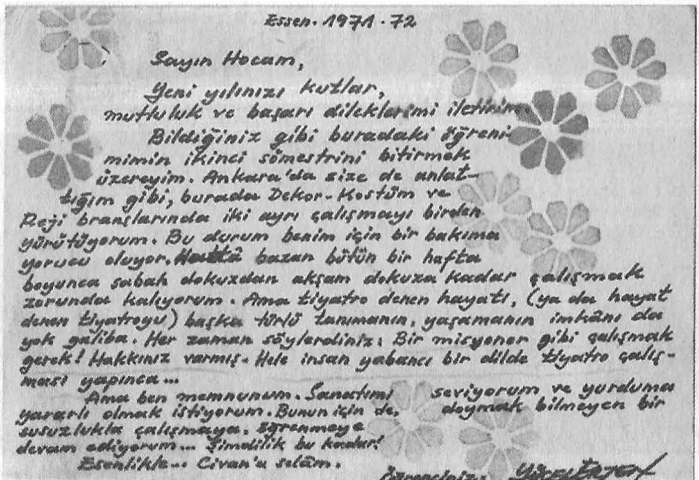 Essen. 1971-72
Sayın Hocam,
Yeni yılınızı kutlar,
mutluluk ve başarı dileklerimi iletirim.
Bildiğiniz gibi buradaki öğreni-
mimin ikinci sömestrini bitirmek
üzereyim. Ankara'da size de anlat-
tığım gibi, burada Dekor-Kostüm ve
Reji branşlarında iki ayrı çalışmayı birden
yürütüyorum. Bu durum benim için bir bakıma
yorucu oluyor. Hattâ bazan bütün bir hafta
boyunca sabah dokuzdan akşam dokuza kadar çalışmak
zorunda kalıyorum. Ama tiyatro denen hayatı, (ya da hayat
denen tiyatroyu) başka türlü tanımanın, yaşamanın imkânı da
yok galiba. Her zaman söylerdiniz: Bir misyoner gibi çalışmak
gerek! Hakkınız varmış. Hele insan yabancı bir dilde tiyatro çalış-
ması yapınca...
Ama ben memnunum. Sanatımı seviyorum ve yurduma
yararlı olmak istiyorum. Bunun için de, doymak bilmeyen bir
susuzlukla çalışmaya, öğrenmeye
devam ediyorum... Şimdilik bu kadar!
Esenlikle... Civan'a selâm.
Öğrenciniz: